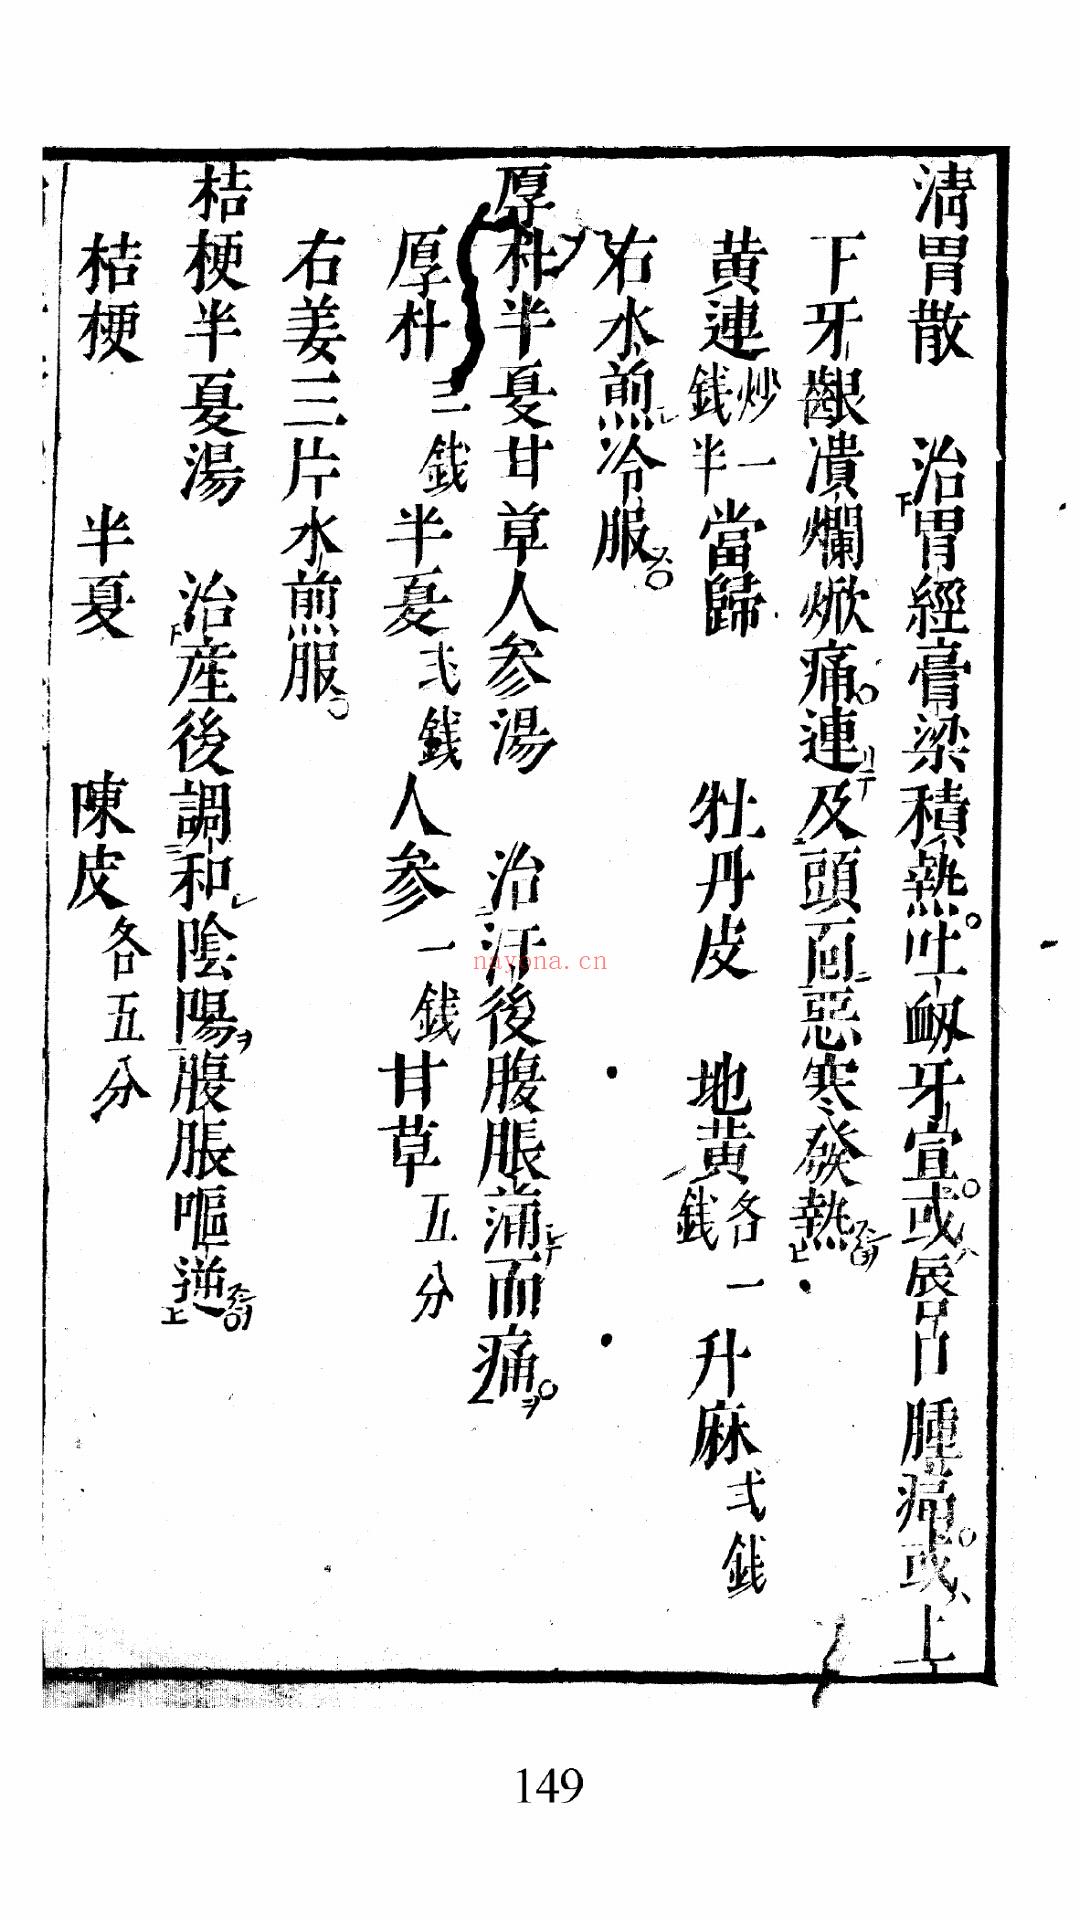 清胃散　治胃經膏梁積熱吐衂牙宣或唇口腫痛或上
下牙齦潰爛焮痛連及頭面惡寒發熱
黄連炒一錢半當歸　牡丹皮　地黄各一錢升麻弍錢
右水煎冷服
厚朴半夏甘草人参湯　治汗後腹脹滿而痛
厚朴三錢半夏弍錢人参一錢甘草五分
右姜三片水煎服
桔梗半夏湯　治産後調和陰陽腹脹嘔逆
桔梗　半夏　陳皮各五分
nayona.cn
149